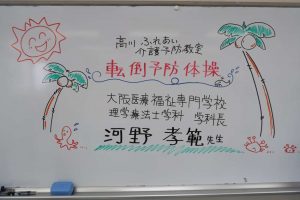 高川 ふれあい
介護予防教室
転倒予防体操
大阪医療福祉専門学校
理学療法士学科 学科長
河野 孝範先生